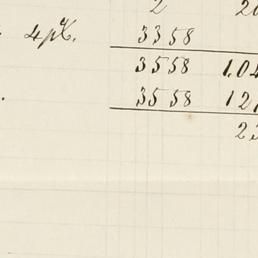 2 20
4 pC. 3358
3558 1,04
3558 12
23